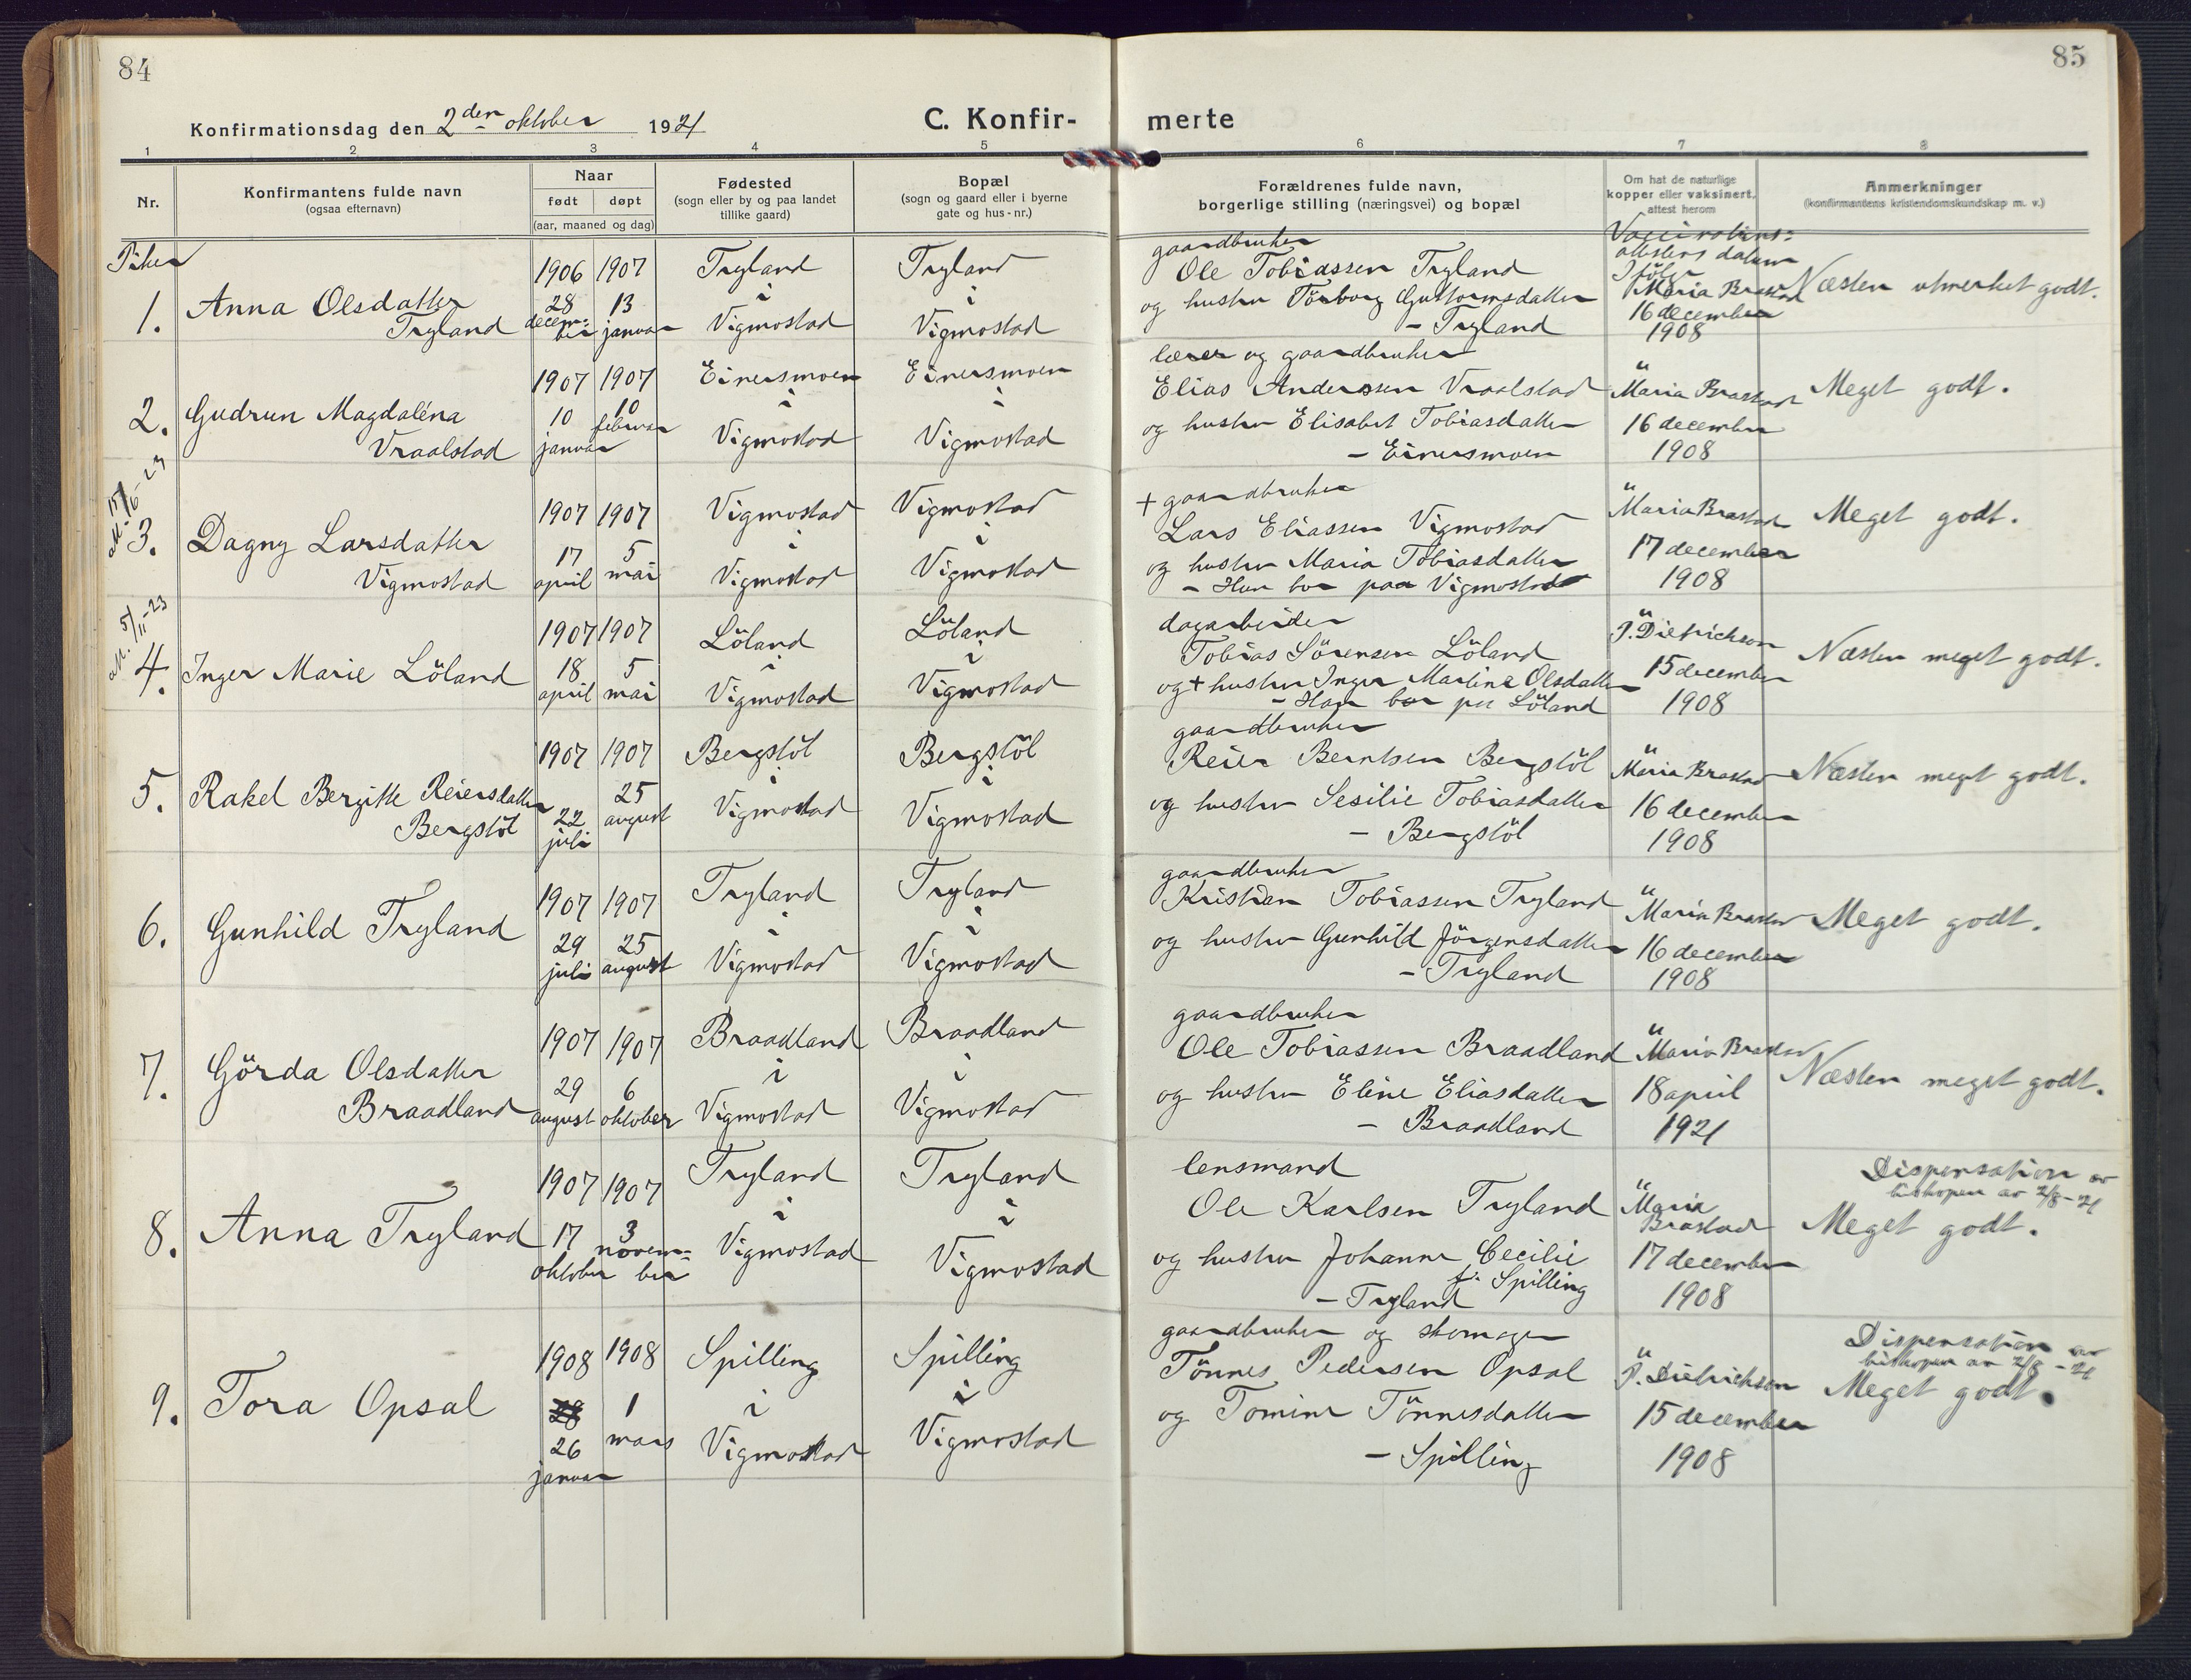 84
85
Konfirmationsdag den 2den oktober 1921
C. Konfir-
merte
1
2
3
4
5
6
7
8
Nr.
Konfirmantens fulde navn
(ogsaa efternavn)
Naar
født
døpt
(aar, maaned og dag)
Fødested
(sogn eller by og paa landet
tillike gaard)
Bopæl
(sogn og gaard eller i byerne
gate og hus-nr.)
Forældrenes fulde navn,
borgerlige stilling (næringsvei) og bopæl
Om hat de naturlige
kopper eller vaksinert,
attest herom
Anmerkninger
(konfirmantens kristendomskundskap m. v.)
Piker
1.
Anna Olsdatter
Tryland
1906
28
decem-
ber
1907
13
januar
Tryland
i
Vigmostad
Tryland
i
Vigmostad
gaardbruker
Ole Tobiassen Tryland
og hustru Torborg Guttormsdatter
- Tryland
attestens datum
Maria Brastad
16 december
1908
Næsten utmerket godt.
2.
Gudrun Magdaléna
Vraalstad
1907
10
januar
1907
10
februar
Einersmoen
i
Vigmostad
Einersmoen
i
Vigmostad
lærer og gaardbruker
Elias Anderssen Vraalstad
og hustru Elisabet Tobiasdatter
- Einersmoen
"
Maria Brastad
16 december
1908
Meget godt.
15/6-23
3.
Dagny Larsdatter
Vigmostad
1907
17
april
1907
5
mai
Vigmostad
i
Vigmostad
Vigmostad
i
Vigmostad
+ gaardbruker
Lars Eliassen Vigmostad
og hustru Maria Tobiasdatter
- Hun bor paa Vigmostad
"
Maria Brastad
17 december
1908
Meget godt.
5/11-23
4.
Inger Marie Löland
1907
18
april
1907
5
mai
Löland
i
Vigmostad
Löland
i
Vigmostad
dagarbeider
Tobias Sörensen Löland
og + hustru Inger Martine Olsdatter
- Han bor paa Löland
"
P. Dietrichson
15 december
1908
Næsten meget godt.
5.
Rakel Bergitte Reiersdatter
Bergstöl
1907
22
juli
1907
25
august
Bergstöl
i
Vigmostad
Bergstöl
i
Vigmostad
gaardbruker
Reier Berntsen Bergstöl
og hustru Sesilie Tobiasdatter
- Bergstöl
"
Maria Brastad
16 december
1908
Næsten meget godt.
6.
Gunhild Tryland
1907
29
juli
1907
25
august
Tryland
i
Vigmostad
Tryland
i
Vigmostad
gaardbruker
Kristian Tobiassen Tryland
og hustru Gunhild Jörgensdatter
- Tryland
"
Maria Brastad
16 december
1908
Meget godt.
7.
Görda Olsdatter
Braadland
1907
29
august
1907
6
oktober
Braadland
i
Vigmostad
Braadland
i
Vigmostad
gaardbruker
Ole Tobiassen Braadland
og hustru Eline Eliasdatter
- Braadland
"
Maria Brastad
18 april
1921
Næsten meget godt.
8.
Anna Tryland
1907
17
oktober
1907
3
novem-
ber
Tryland
i
Vigmostad
Tryland
i
Vigmostad
lensmand
Ole Karlsen Tryland
og hustru Johanne Cecilie
f. Spilling
- Tryland
"
Maria
Brastad
17 december
1908
Dispensation av
biskopen av 2/8-21
Meget godt.
9.
Tora Opsal
1908
28
26
januar
1908
1
mars
Spilling
i
Vigmostad
Spilling
i
Vigmostad
gaardbruker og skomager
Tönnes Pedersen Opsal
og Tomine Tönnesdatter
- Spilling
"
P. Dietrichson
15 december
1908
Dispensation av
biskopen av 2/8-21
Meget godt.